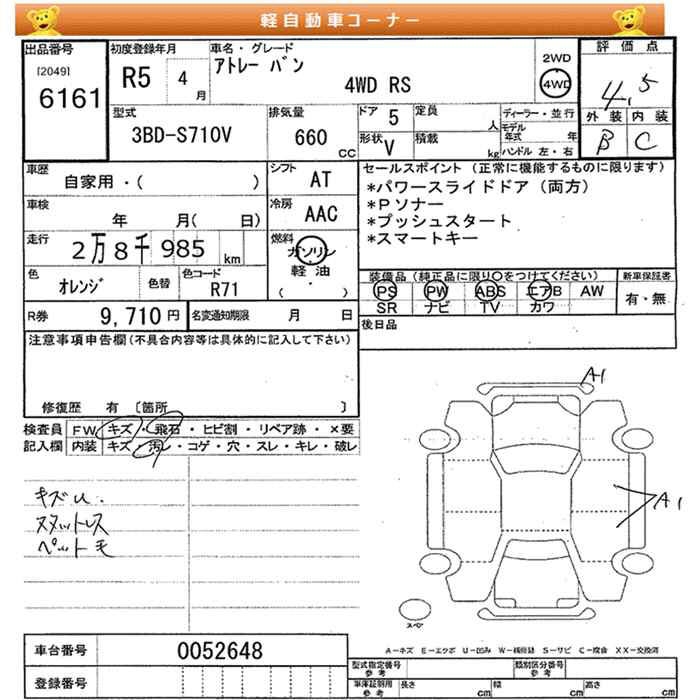 軽自動車コーナー
出品番号
[2049]
6161
初度登録年月
R5 4
月
車名・グレード
アトレー バン
4WD RS
2WD
4WD
評価点
4.5
外装 内装
B C
型式
3BD-S710V
排気量
660
CC
ドア 5
形状 V
定員
人
積載
kg
ディーラー・並行
モデル年式 年
ハンドル 左・右
車歴
自家用・( )
シフト AT
車検
年 月( 日)
冷房 AAC
走行
2万8千985 km
燃料
ガソリン
軽油
( ・ )
色
オレンジ
色替
色コード
R71
R券 9,710 円
名変通知期限 月 日
セールスポイント (正常に機能するものに限ります)
*パワースライドドア(両方)
*Pソナー
*プッシュスタート
*スマートキー
装備品(純正品に限り○をつけてください)
新車保証書
PS PW ABS エアB AW
SR ナビ TV カワ
有・無
後日品
注意事項申告欄(不具合内容等は具体的に記入して下さい)
修復歴 有 〔箇所 〕
検査員 FW キズ・飛石・ヒビ割・リペア跡・×要
記入欄 内装 キズ・汚レ・コゲ・穴・スレ・キレ・破レ
キズU.
ヌメットレス
ペット毛
A1
A1
スペア
A-キズ E-エクボ U-凹み W-補修跡 S-サビ C-腐食 XX-交換済
車台番号 0052648
登録番号
型式指定番号 参考
類別区分番号 参考
車庫証明用 参考
長さ cm
幅 cm
高さ cm